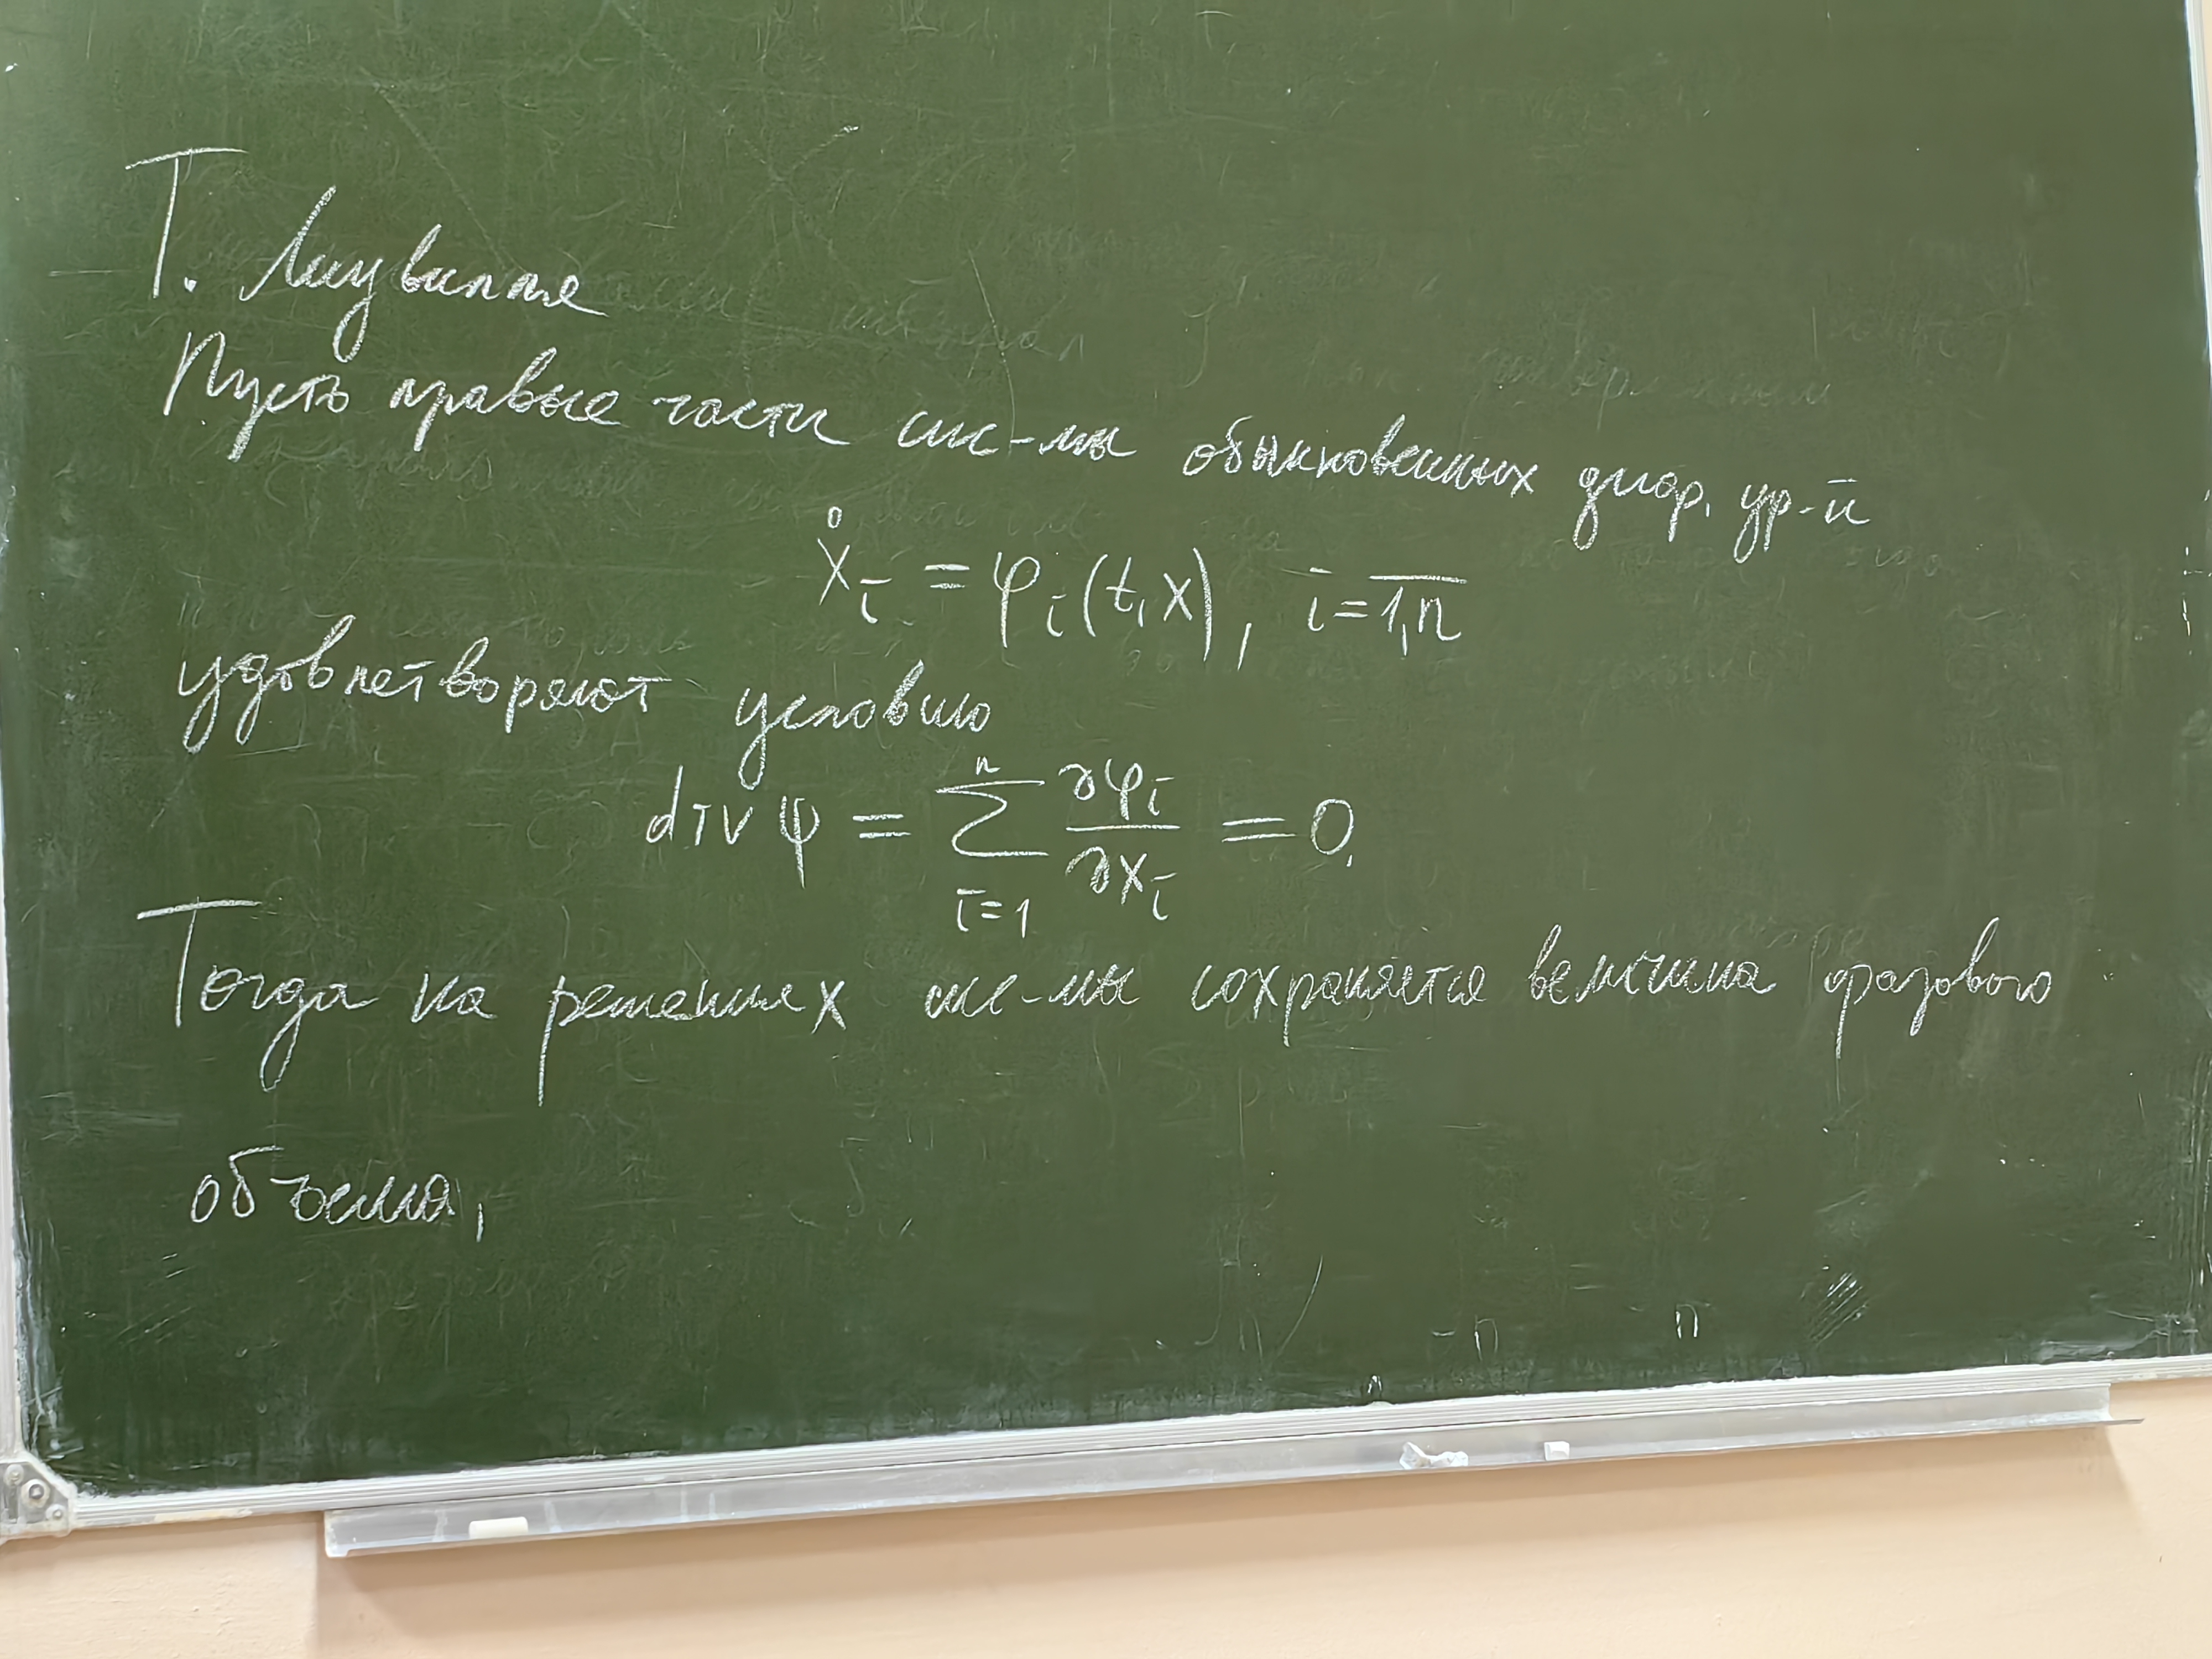 Т. Лиувилля
Пусть правые части сис-мы обыкновенных диф. ур-й
ẋᵢ = φᵢ(t, x), i = \overline{1,n}
удовлетворяют условию
div φ = \sum_{i=1}^{n} \frac{∂φᵢ}{∂xᵢ} = 0.
Тогда на решениях сис-мы сохраняется величина фазового
объема.